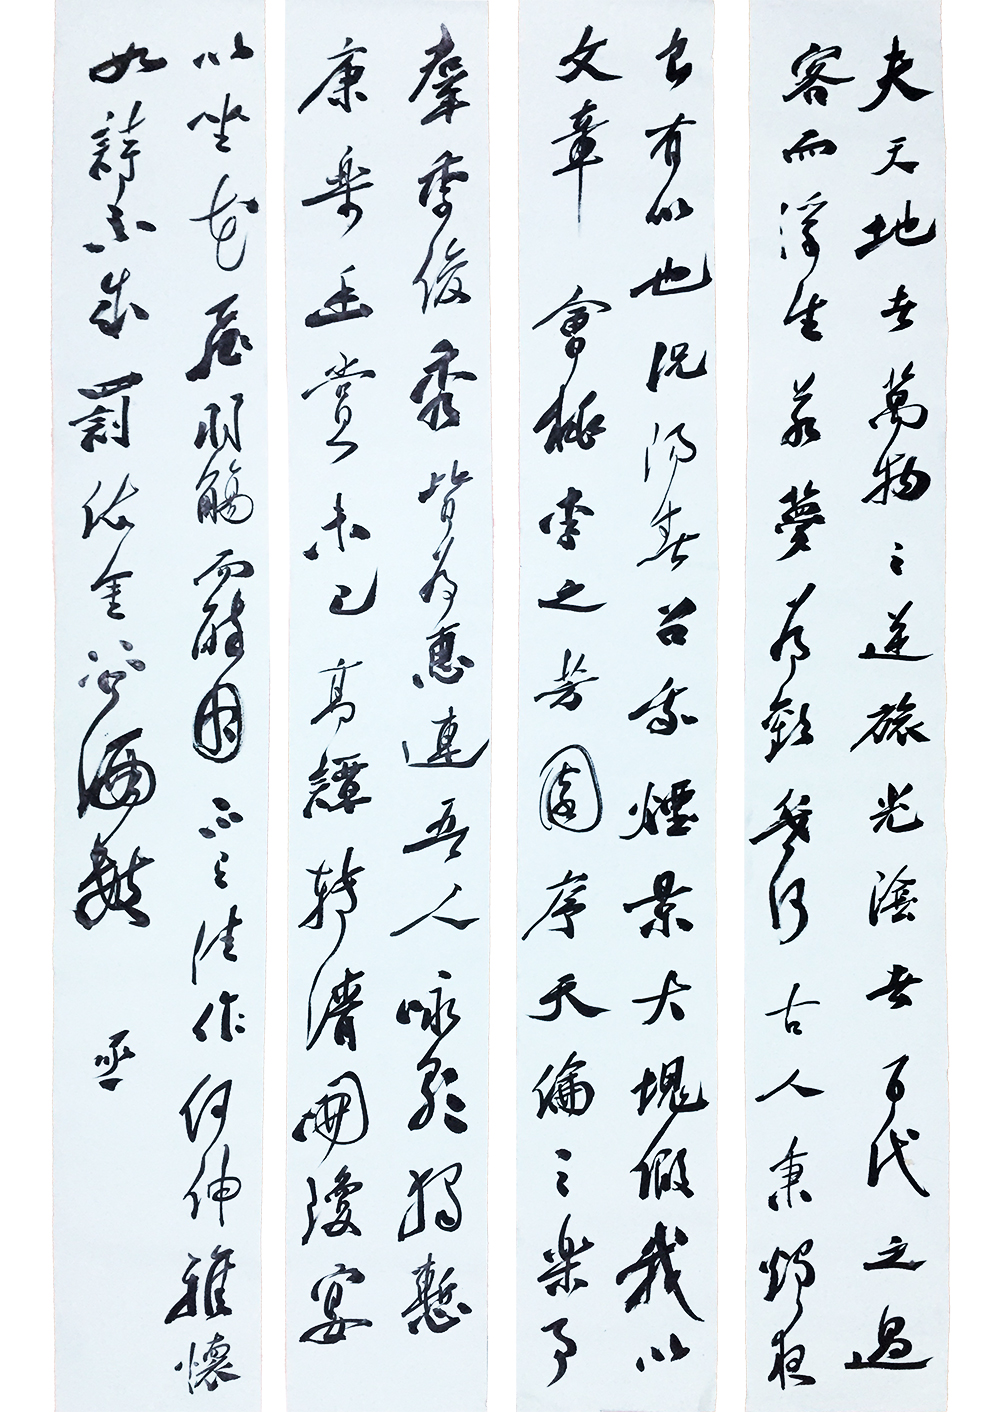 夫天地者萬物之逆旅光陰者百代之過
客而浮生若夢為歡幾何古人秉燭夜
良有以也況陽春召我煙景大塊假我以
文章會桃李之芳園序天倫之樂事
羣季俊秀皆為惠連吾人咏歌獨慙
康樂幽賞未已高譚轉清開瓊宴
以坐花飛羽觴而醉月不有佳作何伸雅懷
如詩不成罰依金谷酒數